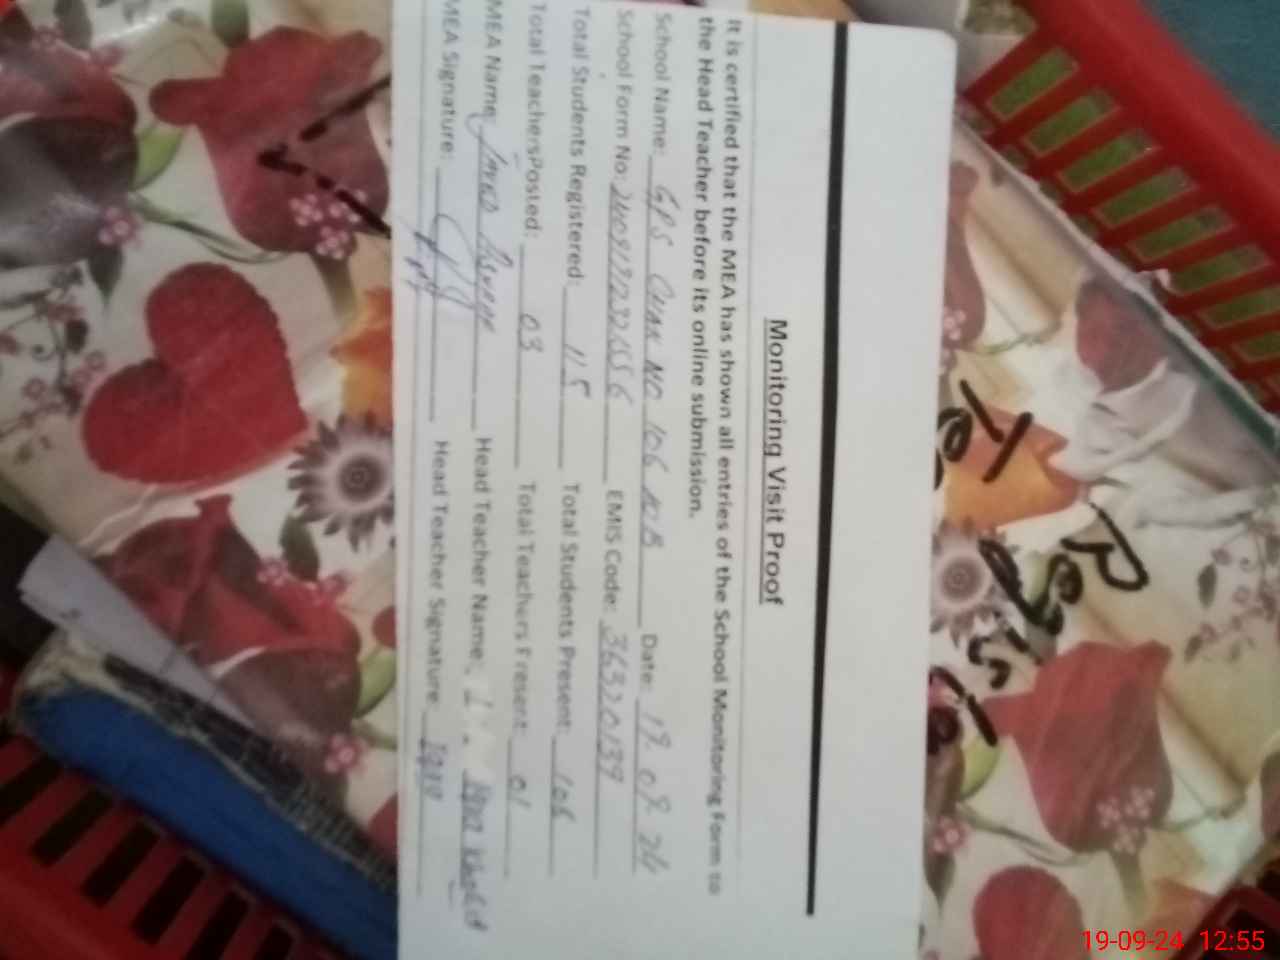 Monitoring Visit Proof
It is certified that the MEA has shown all entries of the School Monitoring Form to
the Head Teacher before its online submission.
School Name: GPS CHAK NO 106 Date: 19.09.24
School Form No: EMIS Code: 36320139
Total Students Registered: 115 Total Students Present: 106
Total Teachers Posted: 03 Total Teachers Present: 01
MEA Name Head Teacher Name: Khalid
MEA Signature: Head Teacher Signature:
19-09-24 12:55